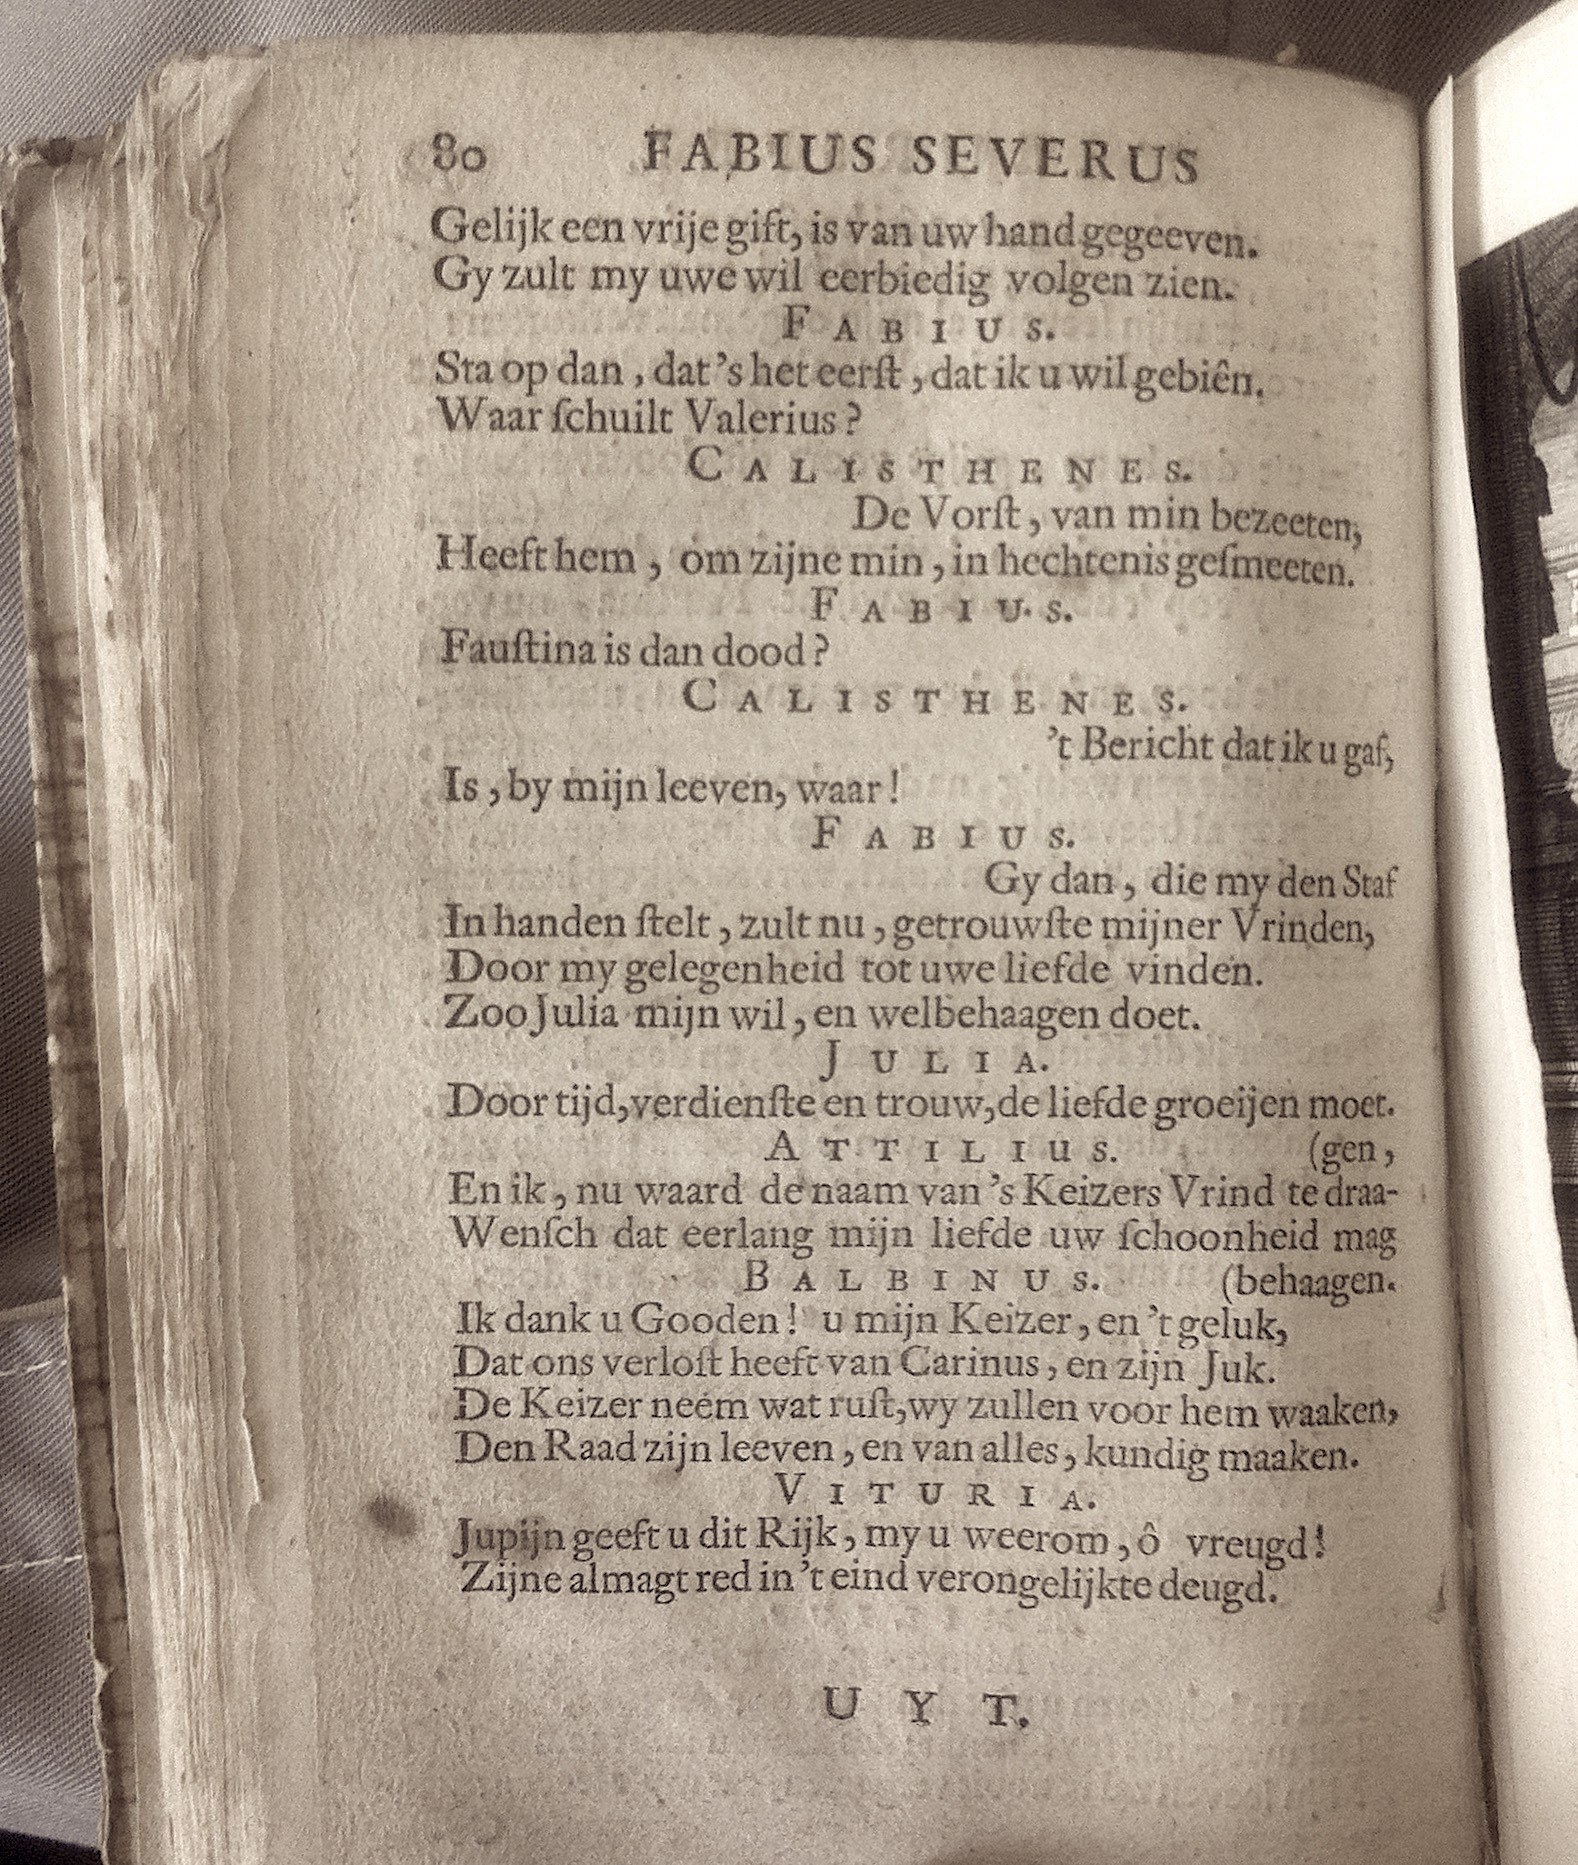 80 FABIUS SEVERUS
Gelijk een vrije gift, is van uw hand gegeeven.
Gy zult my uwe wil eerbiedig volgen zien.
FABIUS.
Sta op dan, dat 's het eerſt, dat ik u wil gebiên.
Waar ſchuilt Valerius?
CALISTHENES.
De Vorſt, van min bezeeten,
Heeft hem, om zijne min, in hechtenis geſmeeten.
FABIUS.
Fauſtina is dan dood?
CALISTHENES.
't Bericht dat ik u gaf,
Is, by mijn leeven, waar!
FABIUS.
Gy dan, die my den Staf
In handen ſtelt, zult nu, getrouwſte mijner Vrinden,
Door my gelegenheid tot uwe liefde vinden.
Zoo Julia mijn wil, en welbehaagen doet.
JULIA.
Door tijd, verdienſte en trouw, de liefde groeijen moet.
ATTILIUS. (gen,
En ik, nu waard de naam van 's Keizers Vrind te draa-
Wenſch dat eerlang mijn liefde uw ſchoonheid mag
BALBINUS. (behaagen.
Ik dank u Gooden! u mijn Keizer, en 't geluk,
Dat ons verloſt heeft van Carinus, en zijn Juk.
De Keizer neem wat ruſt, wy zullen voor hem waaken,
Den Raad zijn leeven, en van alles, kundig maaken.
VITURIA.
Jupijn geeft u dit Rijk, my u weerom, ô vreugd!
Zijne almagt red in 't eind verongelijkte deugd.
UYT.